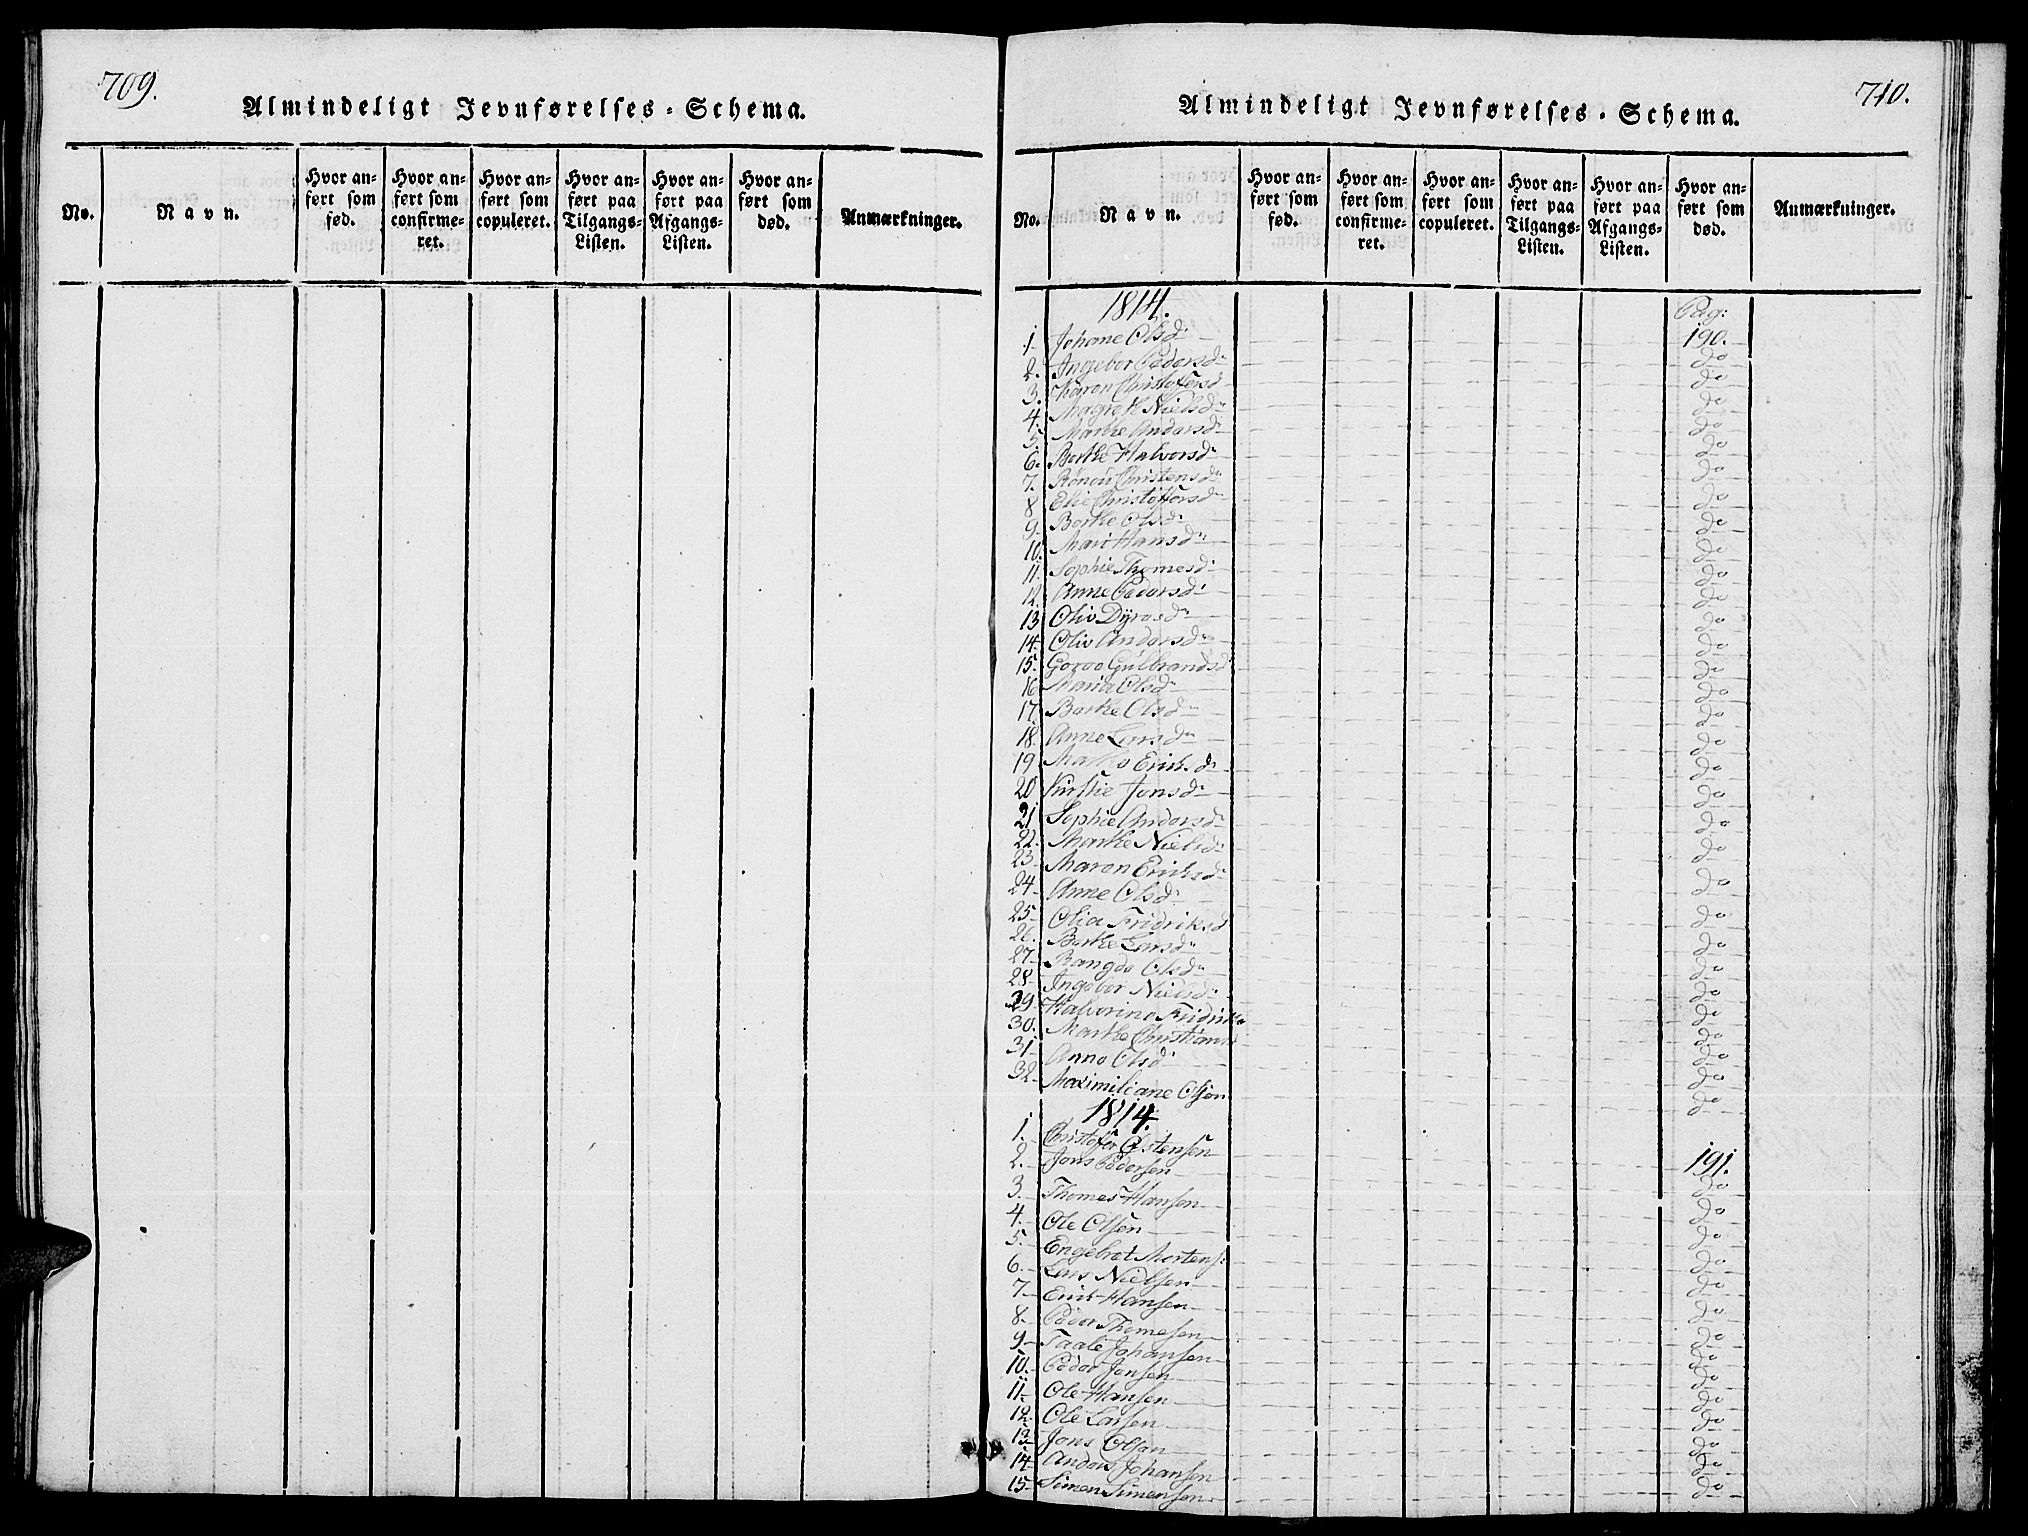 709.
Almindeligt Jevnførelses-Schema.
No.
Navn.
Hvor anført som fød.
Hvor anført som confirmeret.
Hvor anført som copuleret.
Hvor anført paa Tilgangs-Listen.
Hvor anført paa Afgangs-Listen.
Hvor anført som død.
Anmærkninger.
710.
Almindeligt Jevnførelses-Schema.
No.
Navn.
Hvor anført som fød.
Hvor anført som confirmeret.
Hvor anført som copuleret.
Hvor anført paa Tilgangs-Listen.
Hvor anført paa Afgangs-Listen.
Hvor anført som død.
Anmærkninger.
1814. Pag:
1 Johane Olsd: 190.
2. Ingebor Pedersd: do
3. Karen Christofersd do
4. Magreth Nielsd: do
5. Marthe Andersd: do
6. Berthe Halvorsd: do
7. Rönou Christensd: do
8 Elie Christoffersd: do
9. Berthe Olsd: do
10. Mari Hansd: do
11. Sophie Thomesd: do
12. Anne Pedersd: do
13 Oliv Dyresd: do
14. Oliv Andersd: do
15. Goroo Gulbrandsd: do
16 Maria Olsd: do
17. Berthe Olsd: do
18. Anne Larsd: do
19 Marthe Eriksd: do
20 Kirstie Jensd: do
21 Sophie Andersd: do
22. Marthe Nielsd: do
23. Maren Eriksd: do
24. Anne Olsd: do
25. Olia Fridriksd do
26. Berthe Larsd: do
27. Rangdo Olsd: do
28. Ingebor Nielsd: do
29 Halvorine Fridriks do
30. Marthe Christians do
31. Anne Olsd: do
32. Maximiliane Olsen do
1814.
1. Christoffer Østensen 191.
2. Jens Pedersen do
3. Thomes Hansen do
4. Ole Olsen do
5. Engebret Mortens: do
6. Lars Nielsen do
7 Erik Hansen do
8. Peder Thomesen do
9 Taale Johansen do
10. Peder Jensen do
11. Ole Hansen do
12. Ole Larsen do
13. Jens Olsen do
14 Anders Johansen do
15. Simen Simensen do